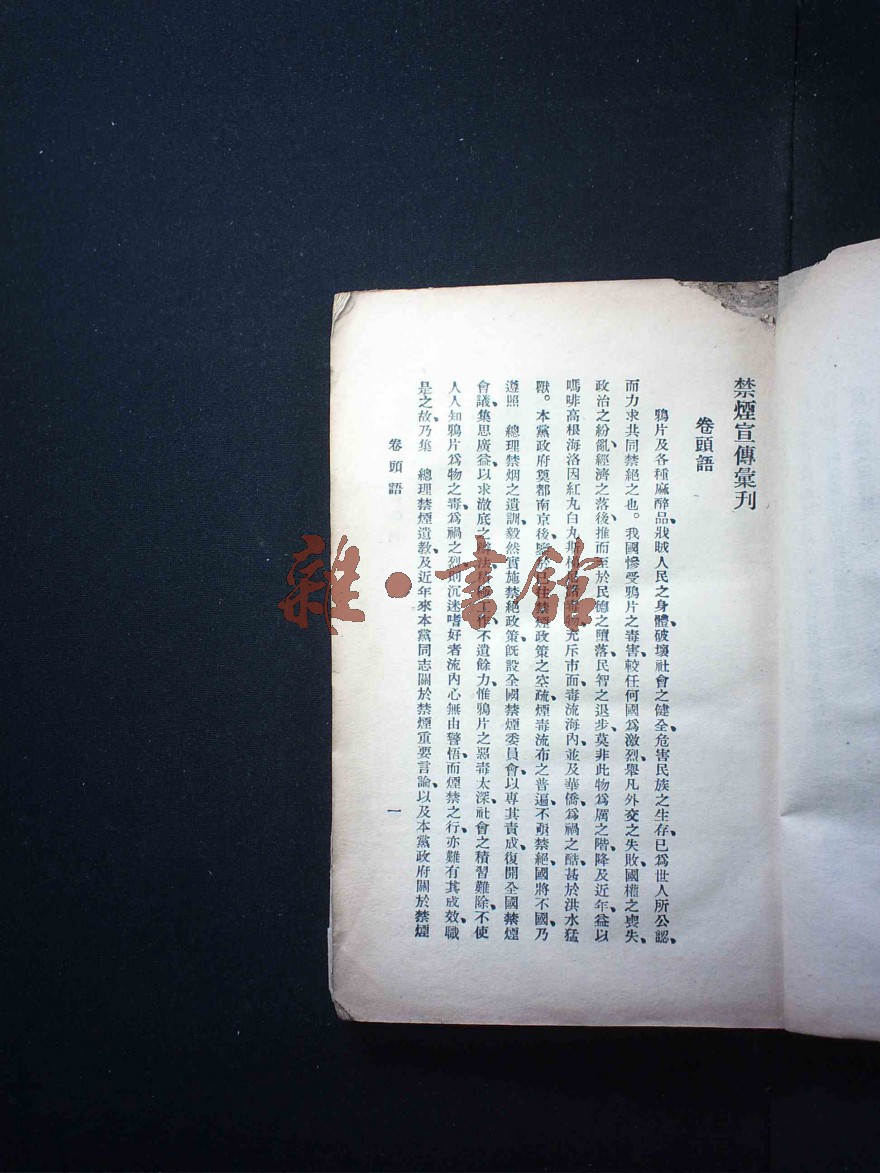 禁煙宣傳彙刊
卷頭語
鴉片及各種麻醉品、戕賊人民之身體、破壞社會之健全、危害民族之生存、已為世人所公認、
而力求共同禁絕之也。我國慘受鴉片之毒害、較任何國為激烈、舉凡外交之失敗、國權之喪失、
政治之紛亂、經濟之落後、推而至於民德之墮落、民智之退步、莫非此物為厲之階、降及近年、益以
嗎啡高根海洛因紅丸白丸斯 充斥市面、毒流海內、並及華僑、為禍之酷、甚於洪水猛
獸。本黨政府奠都南京後、 已往禁煙政策之空疏、煙毒流布之普遍、不亟禁絕、國將不國、乃
遵照　總理禁烟之遺訓、毅然實施禁絕政策、既設全國禁煙委員會、以專其責成、復開全國禁煙
會議、集思廣益、以求澈底之辦法、積極工作、不遺餘力、惟鴉片之惡毒太深、社會之積習難除、不使
人人知鴉片為物之毒、為禍之烈、則沉迷嗜好者流、內心無由警悟、而煙禁之行、亦難有其成效、職
是之故、乃集　總理禁煙遺教、及近年來本黨同志關於禁煙重要言論、以及本黨政府關於禁煙
卷頭語
一
雜·書館